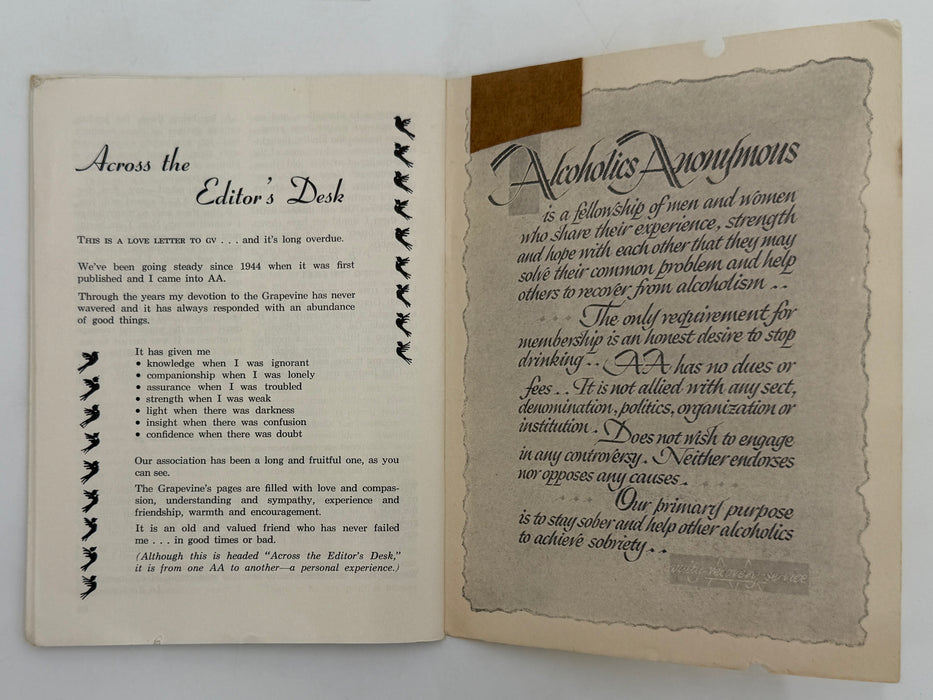 Across the
Editor's Desk
THIS IS A LOVE LETTER TO GV . . . and it's long overdue.
We've been going steady since 1944 when it was first
published and I came into AA.
Through the years my devotion to the Grapevine has never
wavered and it has always responded with an abundance
of good things.
It has given me
• knowledge when I was ignorant
• companionship when I was lonely
• assurance when I was troubled
• strength when I was weak
• light when there was darkness
• insight when there was confusion
• confidence when there was doubt
Our association has been a long and fruitful one, as you
can see.
The Grapevine's pages are filled with love and compas-
sion, understanding and sympathy, experience and
friendship, warmth and encouragement.
It is an old and valued friend who has never failed
me . . . in good times or bad.
(Although this is headed "Across the Editor's Desk,"
it is from one AA to another—a personal experience.)
Alcoholics Anonymous
is a fellowship of men and women
who share their experience, strength
and hope with each other that they may
solve their common problem and help
others to recover from alcoholism . .
The only requirement for
membership is an honest desire to stop
drinking . . AA has no dues or
fees . . It is not allied with any sect,
denomination, politics, organization or
institution . Does not wish to engage
in any controversy . Neither endorses
nor opposes any causes .
Our primary purpose
is to stay sober and help other alcoholics
to achieve sobriety . .
unity-recovery-service